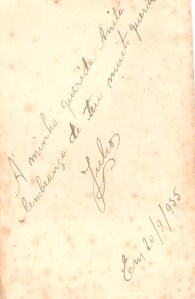 A minha querida Anita
lembrança do teu muito querido
Julio
Em 20/9/955